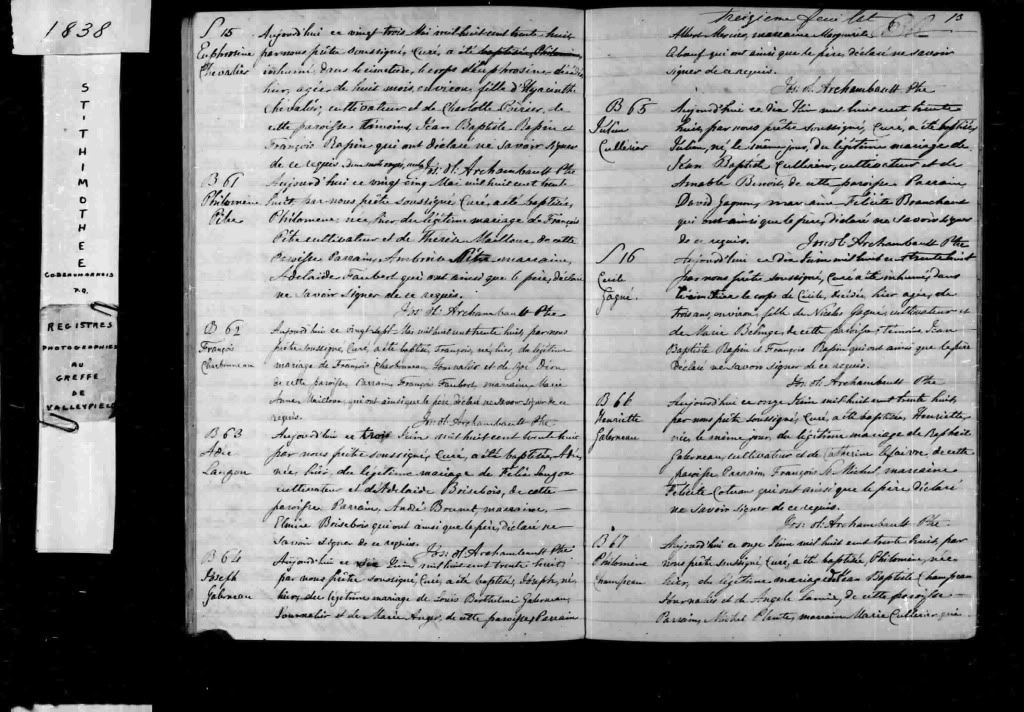 1838
ST. THIMOTHEE
P.Q.
REGISTRES
PHOTOGRAPHIES
AU
GREFFE
DE
VALLEYFIELD
S 15
Euphrosine
Chevalier
Aujourd'hui ce vingt trois Mai mil huit cent trente huit
par nous prêtre soussigné, Curé, a été baptisée Philomene
inhumé dans le cimetiere, le corps d'Euphrosine décédée
hier, agée de huit mois environ fille d'Hyacinthe
Chevalier, cultivateur et de Charlotte Poirier de
cette paroisse témoins, Jean Baptiste Rapin et
François Rapin qui ont déclaré ne savoir signer
de ce requis. Jos. Ol. Archambault Ptre
B 61
Philomene
Pitre
Aujourd'hui ce vingt cinq Mai mil huit cent trente
huit par nous prêtre soussigné Curé, a été baptisée,
Philomene née hier du légitime mariage de François
Pitre cultivateur et de Therèse Mailloux de cette
paroisse Parrain, Ambroise Pitre marraine,
Adelaide Faubert qui ont ainsi que le père, déclaré
ne savoir signer de ce requis.
Jos. Ol. Archambault Ptre
B 62
François
Charbonneau
Aujourd'hui ce vingt-sept Mai mil huit cent trente huit, par nous
prêtre soussigné, Curé, a été baptisé, François, né, hier, du légitime
mariage de François Charbonneau Journalier et de
de cette paroisse Parrain François Faubert marraine Marie
Anne qui ont ainsi que le père déclaré ne savoir signer de ce
requis. Jos. Ol. Archambault Ptre
B 63
Adée
Langon
Aujourd'hui ce trois Juin mil huit cent trente huit
par nous prêtre soussigné, Curé, a été baptisée, Adée,
née hier du legitime mariage de Felix Langon
cultivateur et d'Adelaide Boisebois, de cette
paroisse Parrain, André Bournet, marraine,
Elmire Boisebois qui ont ainsi que le père, déclaré ne
savoir signer de ce requis. Jos. Ol. Archambault Ptre
B 64
Joseph
Gabureau
Aujourd'hui ce dix Juin mil huit cent trente huit
par nous prêtre soussigné, Curé, a été baptisé, Joseph, né,
hier, du legitime mariage de Louis Berthelmi Gabureau,
Journalier et de Marie Anger, de cette paroisse, Parrain
treizieme feuillet 13
Albert Mercier, marraine Marguerite
qui ont ainsi que le père, déclaré ne savoir
signer de ce requis.
Jos. Ol. Archambault Ptre
B 65
Julien
Cullerier
Aujourd'hui ce dix Juin mil huit cent trente
huit, par nous prêtre soussigné, Curé, a été baptisé,
Julien, né, le même jour, du légitime mariage de
Jean Baptiste Cullerier, cultivateur et de
Amable Benoit, de cette paroisse Parrain
David Gagnon, marraine Felicité Branchaud
qui ont ainsi que le père, déclaré ne savoir signer
de ce requis. Jos. Ol. Archambault Ptre
S 16
Cecile
Gagné
Aujourd'hui ce dix Juin mil huit cent trente huit
par nous prêtre soussigné, Curé a été inhumé, dans
le cimetière le corps de Cécile, décédée hier agée, de
trois ans, environ, fille de Nicolas Gagné, cultivateur et
de Marie de cette paroisse, témoins, Jean
Baptiste Rapin et François Rapin qui ont ainsi que le père
déclaré ne savoir signer de ce requis.
Jos. Ol. Archambault Ptre
B 66
Henriette
Gabureau
Aujourd'hui ce onze Juin mil huit cent trente huit,
par nous prêtre soussigné, Curé, a été baptisée, Henriette,
née, le même jour, du légitime mariage de Raphaël
Gabureau, cultivateur et de Catherine Lefaivre, de cette
paroisse Parrain, François St Michel marraine
Felicité qui ont ainsi que le père déclaré
ne savoir signer de ce requis.
Jos. Ol. Archambault Ptre
B 67
Philomene
Champeau
Aujourd'hui ce onze Juin mil huit cent trente huit, par
nous prêtre soussigné, Curé, a été baptisée, Philomène, née
hier, du légitime mariage de Jean Baptiste Champeau
Journalier et de Angele de cette paroisse
Parrain, Michel Plante, marraine Marie Cullerier qui